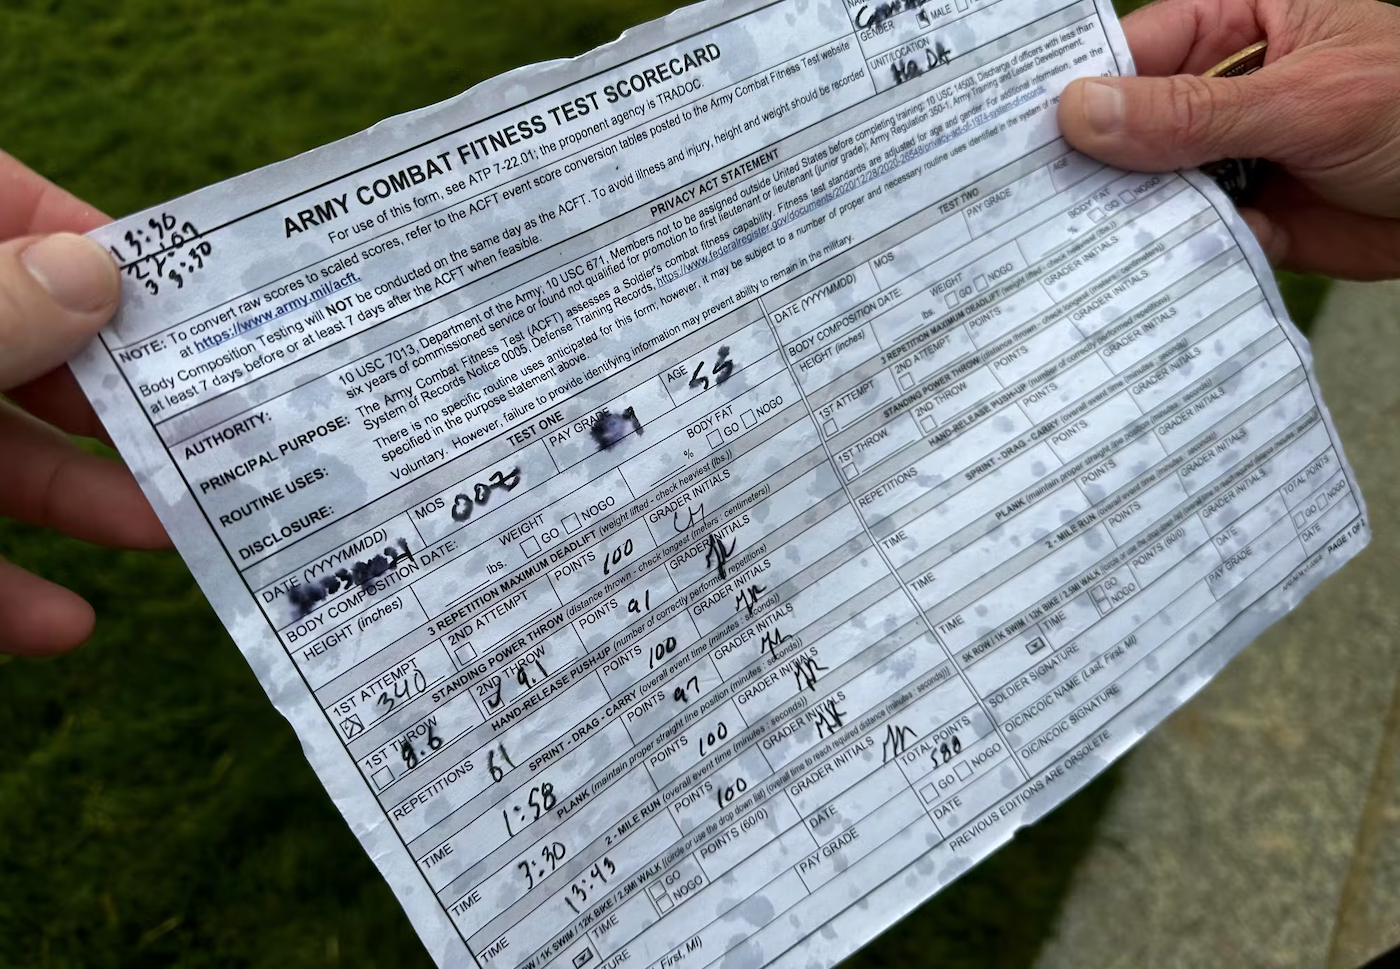 ARMY COMBAT FITNESS TEST SCORECARD
For use of this form, see ATP 7-22.01; the proponent agency is TRADOC.
13:30
3:30
GENDER MALE
UNIT/LOCATION
NOTE: To convert raw scores to scaled scores, refer to the ACFT event score conversion tables posted to the Army Combat Fitness Test website
at https://www.army.mil/acft.
Body Composition Testing will NOT be conducted on the same day as the ACFT. To avoid illness and injury, height and weight should be recorded
at least 7 days before or at least 7 days after the ACFT when feasible.
PRIVACY ACT STATEMENT
AUTHORITY: 10 USC 7013, Department of the Army; 10 USC 671, Members not to be assigned outside United States before completing training; 10 USC 14503, Discharge of officers with less than
six years of commissioned service or found not qualified for promotion to first lieutenant or lieutenant (junior grade); Army Regulation 350-1, Army Training and Leader Development.
PRINCIPAL PURPOSE: The Army Combat Fitness Test (ACFT) assesses a Soldier's combat fitness capability. Fitness test standards are adjusted for age and gender. For additional information, see the
System of Records Notice 0005, Defense Training Records, https://www.federalregister.gov/documents/2020/12/28/2020-28548/privacy-act-of-1974-system-of-records.
ROUTINE USES: There is no specific routine uses anticipated for this form; however, it may be subject to a number of proper and necessary routine uses identified in the system of
specified in the purpose statement above.
DISCLOSURE: Voluntary. However, failure to provide identifying information may prevent ability to remain in the military.
TEST ONE
DATE (YYYYMMDD) MOS 00Z PAY GRADE AGE 55
BODY COMPOSITION DATE:
HEIGHT (inches) WEIGHT lbs. GO NOGO BODY FAT % GO NOGO
3 REPETITION MAXIMUM DEADLIFT (weight lifted - check heaviest (lbs.))
1ST ATTEMPT 340 2ND ATTEMPT POINTS 100 GRADER INITIALS
STANDING POWER THROW (distance thrown - check longest (meters : centimeters))
1ST THROW 8.6 2ND THROW 9.1 POINTS 91 GRADER INITIALS
HAND-RELEASE PUSH-UP (number of correctly performed repetitions)
REPETITIONS 61 POINTS 100 GRADER INITIALS
SPRINT - DRAG - CARRY (overall event time (minutes : seconds))
TIME 1:58 POINTS 97 GRADER INITIALS
PLANK (maintain proper straight line position (minutes : seconds))
TIME 3:30 POINTS 100 GRADER INITIALS
2 - MILE RUN (overall event time (minutes : seconds))
TIME 13:43 POINTS 100 GRADER INITIALS
ROW / 1K SWIM / 12K BIKE / 2.5MI WALK (circle or use the drop down list) (overall time to reach required distance (minutes : seconds))
TIME GO NOGO POINTS (60/0) GRADER INITIALS TOTAL POINTS 588
GO NOGO
DATE
First, MI) PAY GRADE DATE
TEST TWO
DATE (YYYYMMDD) MOS PAY GRADE AGE
BODY COMPOSITION DATE:
HEIGHT (inches) lbs. WEIGHT GO NOGO BODY FAT % GO NOGO
3 REPETITION MAXIMUM DEADLIFT (weight lifted - check heaviest (lbs.))
1ST ATTEMPT 2ND ATTEMPT POINTS GRADER INITIALS
STANDING POWER THROW (distance thrown - check longest (meters : centimeters))
1ST THROW 2ND THROW POINTS GRADER INITIALS
HAND-RELEASE PUSH-UP (number of correctly performed repetitions)
REPETITIONS POINTS GRADER INITIALS
SPRINT - DRAG - CARRY (overall event time (minutes : seconds))
TIME POINTS GRADER INITIALS
PLANK (maintain proper straight line position (minutes : seconds))
TIME POINTS GRADER INITIALS
2 - MILE RUN (overall event time (minutes : seconds))
TIME POINTS GRADER INITIALS
5K ROW / 1K SWIM / 12K BIKE / 2.5MI WALK
TIME GO NOGO POINTS (60/0) GRADER INITIALS TOTAL POINTS
GO NOGO
SOLDIER SIGNATURE DATE
OIC/NCOIC NAME (Last, First, MI) PAY GRADE
OIC/NCOIC SIGNATURE DATE
PREVIOUS EDITIONS ARE OBSOLETE
PAGE 1 OF 2